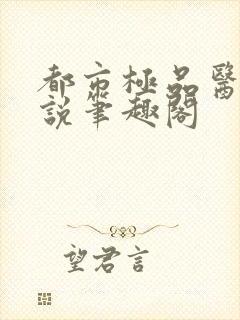 都市極品醫
說筆趣閣
望君言